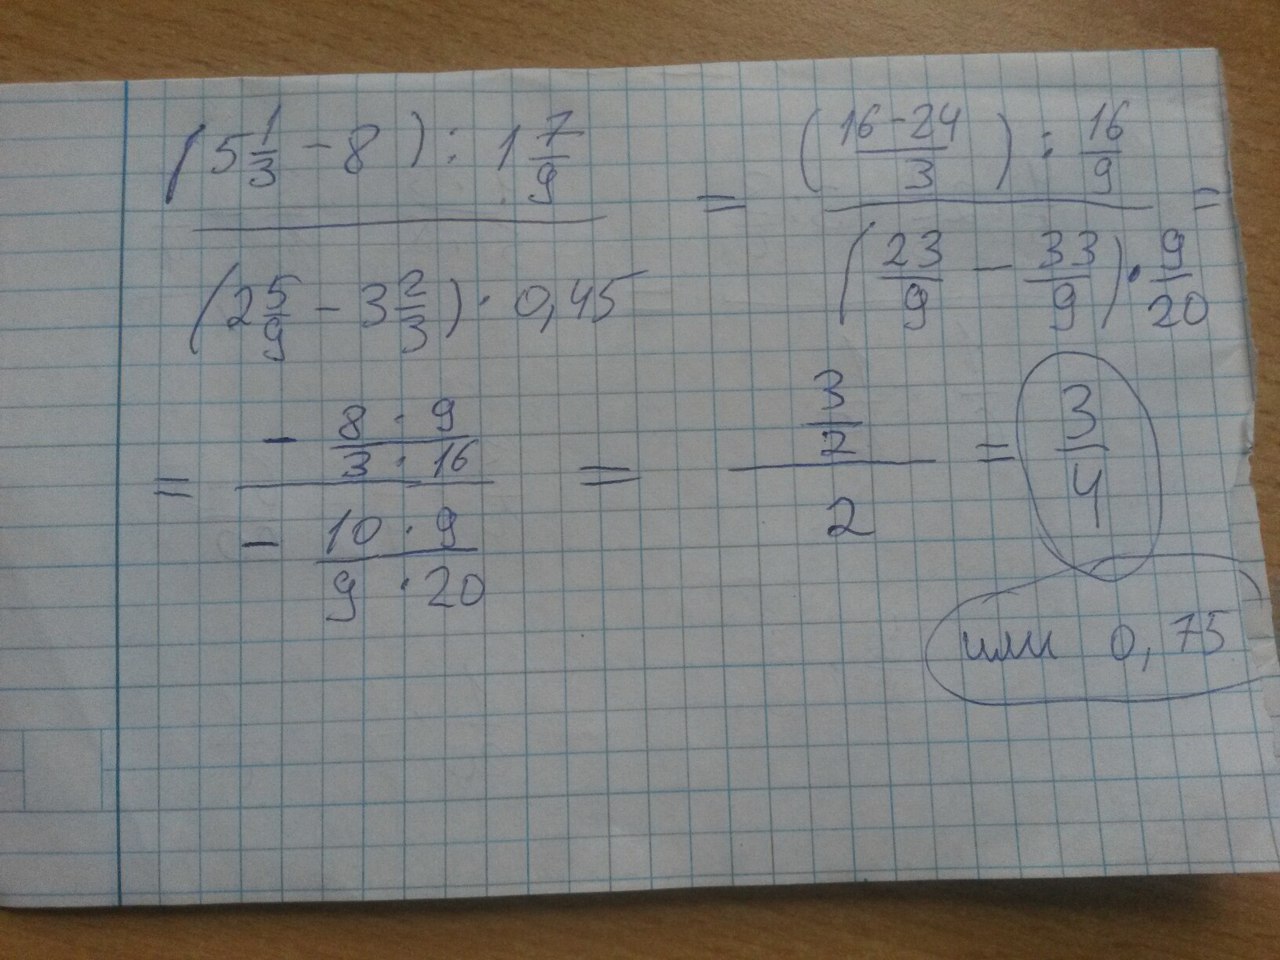 (5 1/3 - 8) : 1 7/9 / (2 5/9 - 3 2/3) · 0,45 = ((16-24)/3) : 16/9 / (23/9 - 33/9) · 9/20 =
= - (8 · 9)/(3 · 16) / - (10 · 9)/(9 · 20) = 3/2 / 2 = 3/4
или 0,75